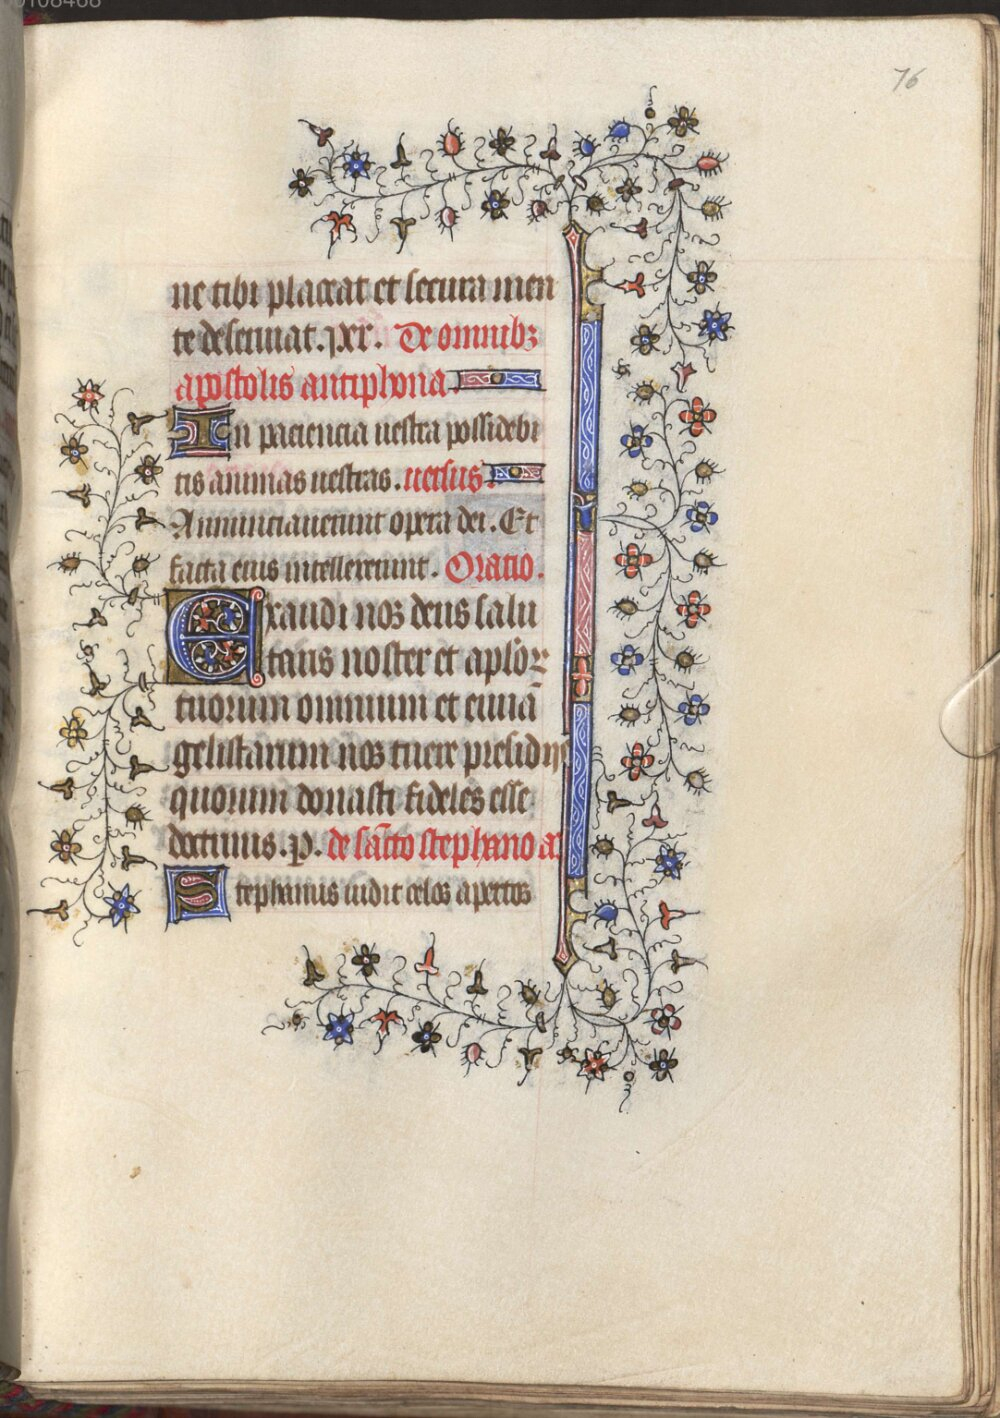 00108468
76
ne tibi placeat et secura men
te deseruiat. pxr. De omnibꝫ
apostolis antiphona
In paciencia uestra possidebi
tis animas uestras. uersus.
Annunciauerunt opera dei. Et
facta eius intellexerunt. Oratio.
Exaudi nos deus salu
taris noster et aplōꝝ
tuorum omnium et euuā
gelistarum nos tuere presidijs
quorum donasti fideles esse
doctrinis. p. de sācto stephano aȝ
Stephanus uidit celos apertos